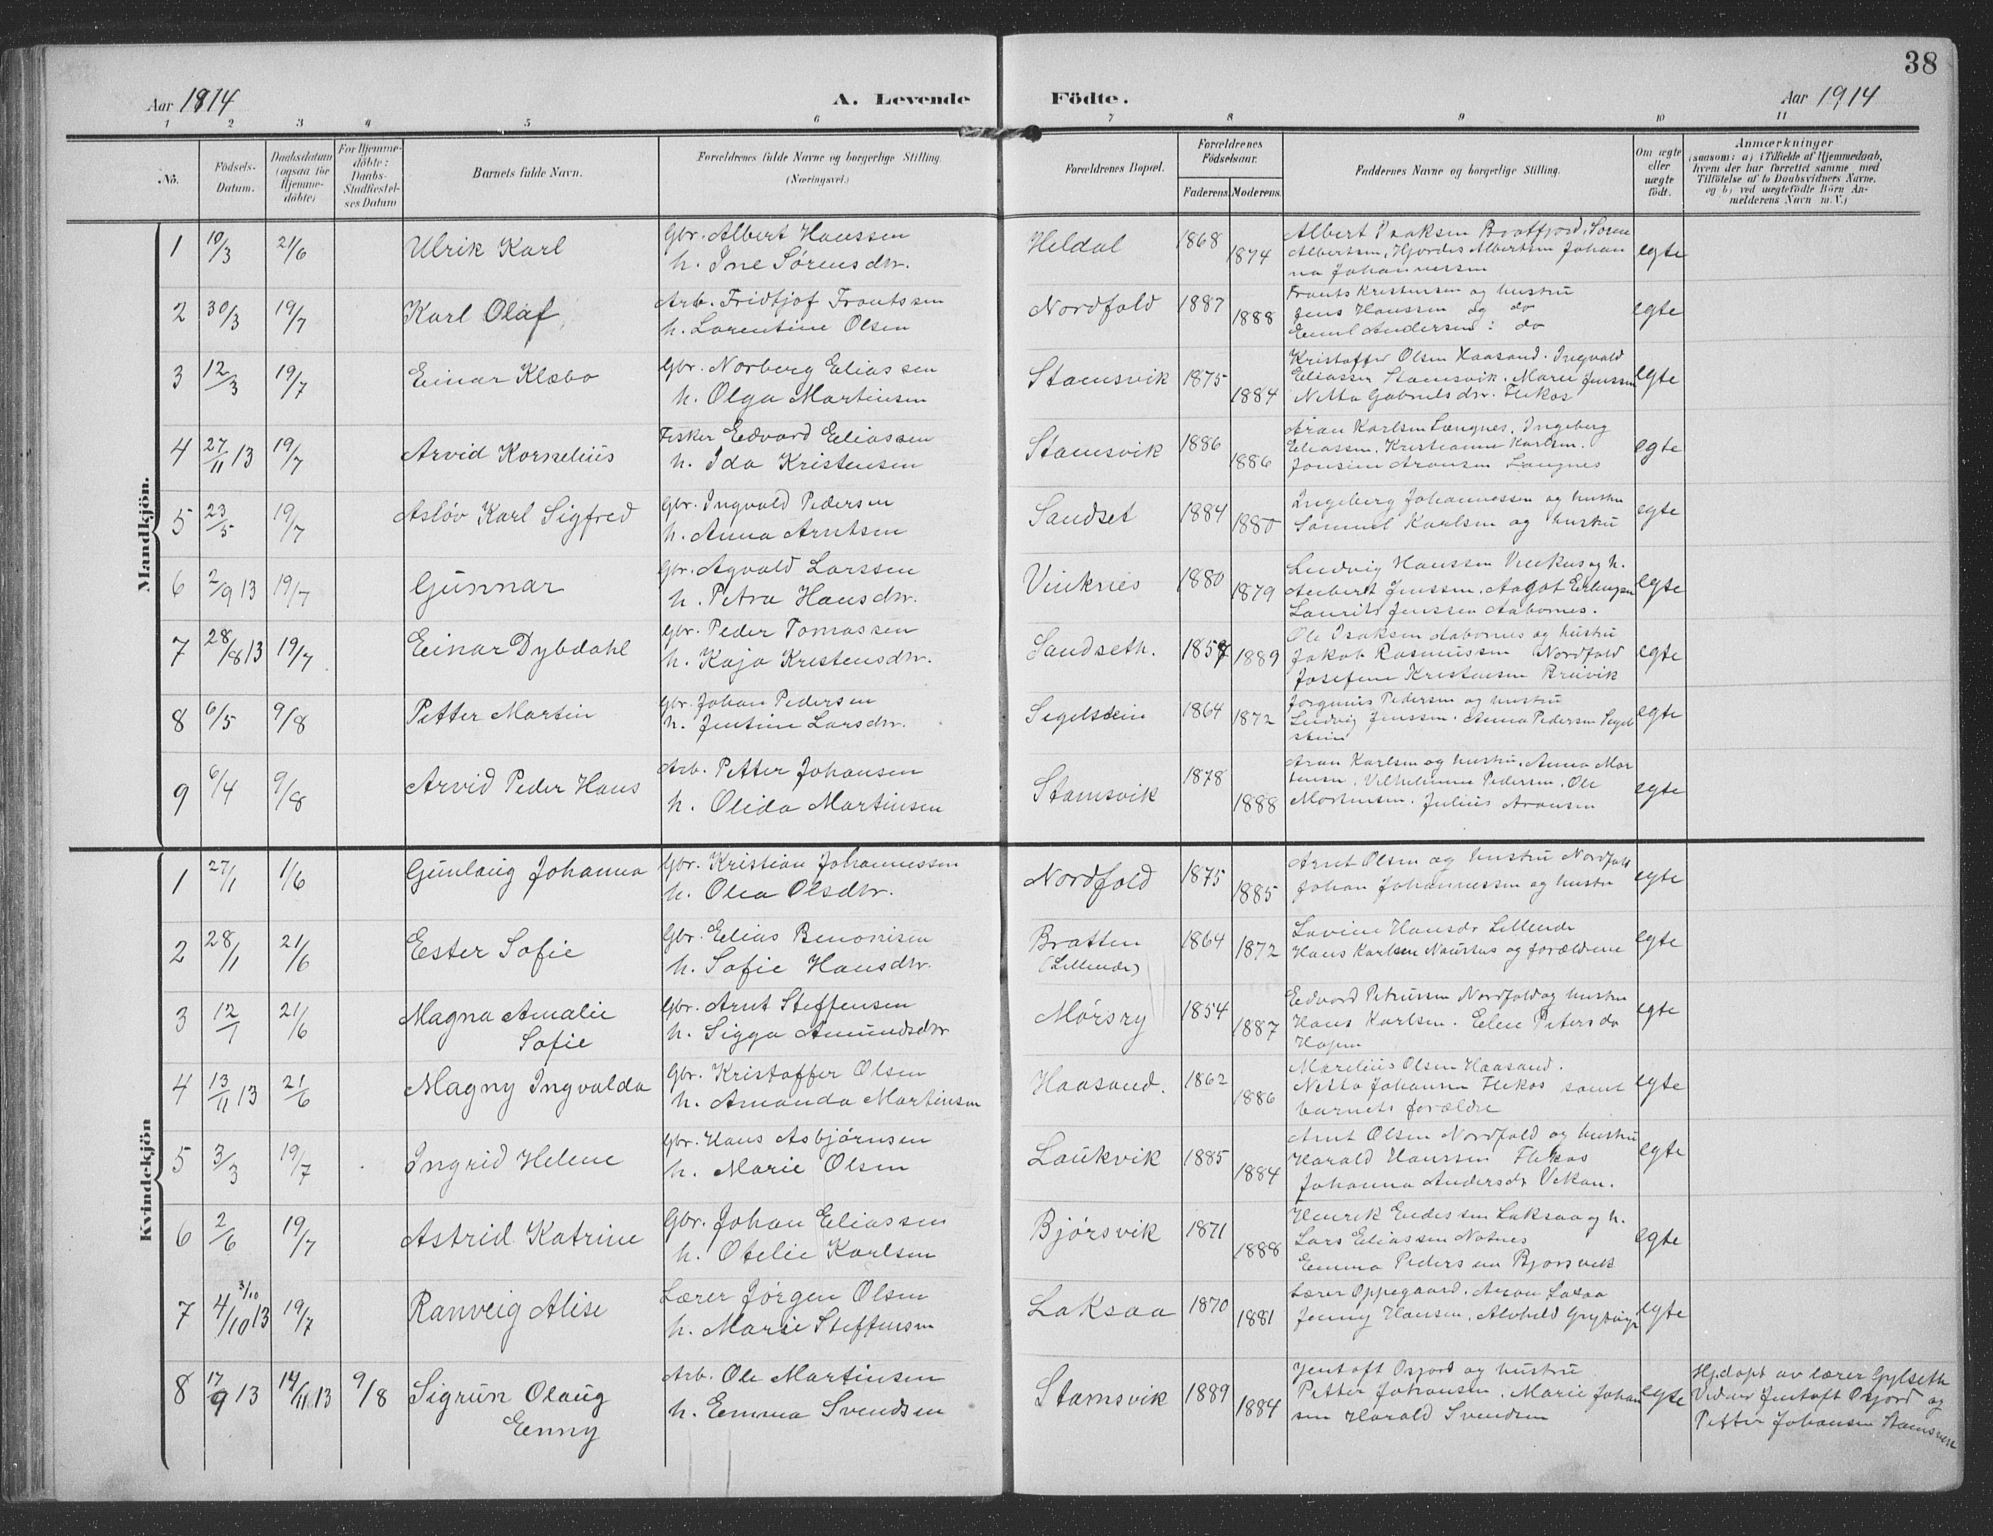 38
Aar 1914 A. Levende Födte. Aar 1914
1 2 3 4 5 6 7 8 9 10 11
No. Födsels-Datum. Daabsdatum (ogsaa for Hjemmedöbte) For Hjemmedöbte: Daabs-Stadfæstelses Datum Barnets fulde Navn. Forældrenes fulde Navne og borgerlige Stilling. (Næringsvei.) Forældrenes Bopæl. Forældrenes Födselsaar. Faderens. Moderens. Faddernes Navne og borgerlige Stilling. Om ægte eller uægte födt. Anmærkninger (saasom: a) i Tilfælde af Hjemmedaab, hvem der har forrettet samme med Tilföielse af to Daabsvidners Navne. og b) ved uægtefödte Börn Anmelderens Navn m. V.)
Mandkjön.
1 10/3 21/6 Ulrik Karl Gbr. Albert Hanssen Heldal 1868 1874 Albert Isaksen Bratfjord, Sören egte
h. Ine Sørensdtr. Albertsen, Hjørdis Albertsen Johan
na Johannessen
2 30/3 19/7 Karl Olaf Arb. Fridtjof Frantssen Nordfold 1887 1888 Frants Kristensen og hustru egte
h. Lorentine Olsen Jens Hanssen og do
Emil Andersen: do
3 12/3 19/7 Einar Klæbo Gbr. Norberg Eliassen Stamsvik 1875 1884 Kristoffer Olsen Haasand. Ingvald egte
h. Olga Martinsen Eliassen Stamsvik. Marie Jenssen
Netta Gabrielsdtr. Flekos
4 27/11 13 19/7 Arvid Kornelius Fisker Edvard Eliassen Stamsvik 1886 1886 Aron Karlsen Langnes, Ingeberg egte
h. Ida Kristensen Eliassen. Kristianne Karlsen.
Jonsine Aronsen Langnes
5 23/5 19/7 Asløv Karl Sigfred Gbr. Ingvald Pedersen Sandset 1884 1880 Ingeberg Johannessen og hustru egte
h. Anna Arntsen Samuel Karlsen og hustru
6 2/9 13 19/7 Gunnar Gbr. Agvald Larssen Vinknes 1880 1879 Ludvig Hanssen Vinknes og h. egte
h. Petra Hansdtr. Anbert Jenssen. Aagot Erlingsen
Laurits Jenssen Aabornes.
7 28/8 13 19/7 Einar Dybdahl Gbr. Peder Tomassen Sandseth. 1857 1889 Ole Isaksen Aabornes og hustru egte
h. Kaja Kristensdtr. Jakob Rasmussen Nordfold
Josefine Kristensen Brúvik
8 6/5 9/8 Petter Martin Gbr. Johan Pedersen Segelstein 1864 1872 Jorginus Pedersen og hustru egte
h. Jentine Larsdtr. Ludvig Jenssen. Anna Pedersen Segel
stein
9 6/4 9/8 Arvid Peder Hans Arb. Petter Johansen Stamsvik 1878 1888 Aron Karlsen og hustru, Anna Mor egte
h. Olida Martinsen tensen. Vilhelmine Pedersen. Ole
Mortensen. Julius Aronsen
Kvindekjön
1 27/1 1/6 Gunlaug Johanna Gbr. Kristian Johannessen Nordfold 1875 1885 Arnt Olsen og hustru Nordfold egte
h. Olea Olsdtr. Johan Johannessen og hustru
2 28/1 21/6 Ester Sofie Gbr. Elias Benonisen Bratten 1864 1872 Lovine Hansdr Lillende egte
h. Sofie Hansdtr. (Lillende) Hans Karlsen Naustas og forældrene
3 12/1 21/6 Magna Amalie Gbr. Arnt Steffensen Mørsry 1854 1887 Edvard Petrussen Nordfold og hustru egte
Sofie h. Sigga Amundsdtr Hans Karlsen. Eline Petersdo
Hopen
4 13/11 13 21/6 Magny Ingvalda Gbr. Kristoffer Olsen Haasand. 1862 1886 Marelius Olsen Haasand. egte
h. Amanda Martinsen Netta Johansen Flekos samt
barnets forældre
5 3/3 19/7 Ingrid Helene Gbr. Hans Asbjørnsen Laukvik 1885 1884 Arnt Olsen Nordfold og hustru egte
h. Marie Olsen Harald Hanssen Flekos
Johanna Andersdr Vekan.
6 2/6 19/7 Astrid Katrine Gbr. Johan Eliassen Bjørsvik 1871 1888 Henrik Endessen Laksaa og h. egte
h. Otelie Karlsen Lars Eliassen Notnes
Emma Pedersen Bjørsvik
7 3/10 4/10 13 19/7 Ranveig Alise Lærer Jørgen Olsen Laksaa 1870 1881 Lærer Oppegaard. Anton Laksaa egte
h. Marie Steffensen Jenny Hansen.
8 17/9 13 14/11 13 9/8 Sigrun Olaug Arb. Ole Martinsen Stamsvik 1889 1884 Jentoft Osfjord og hustru egte Hjdøpt av lærer Gylseth
Enny h. Emma Svendsen Petter Johansen. Marie Johan Vidner Jentoft Osfjord og
sen Harald Svendsen Petter Johansen Stamsvik